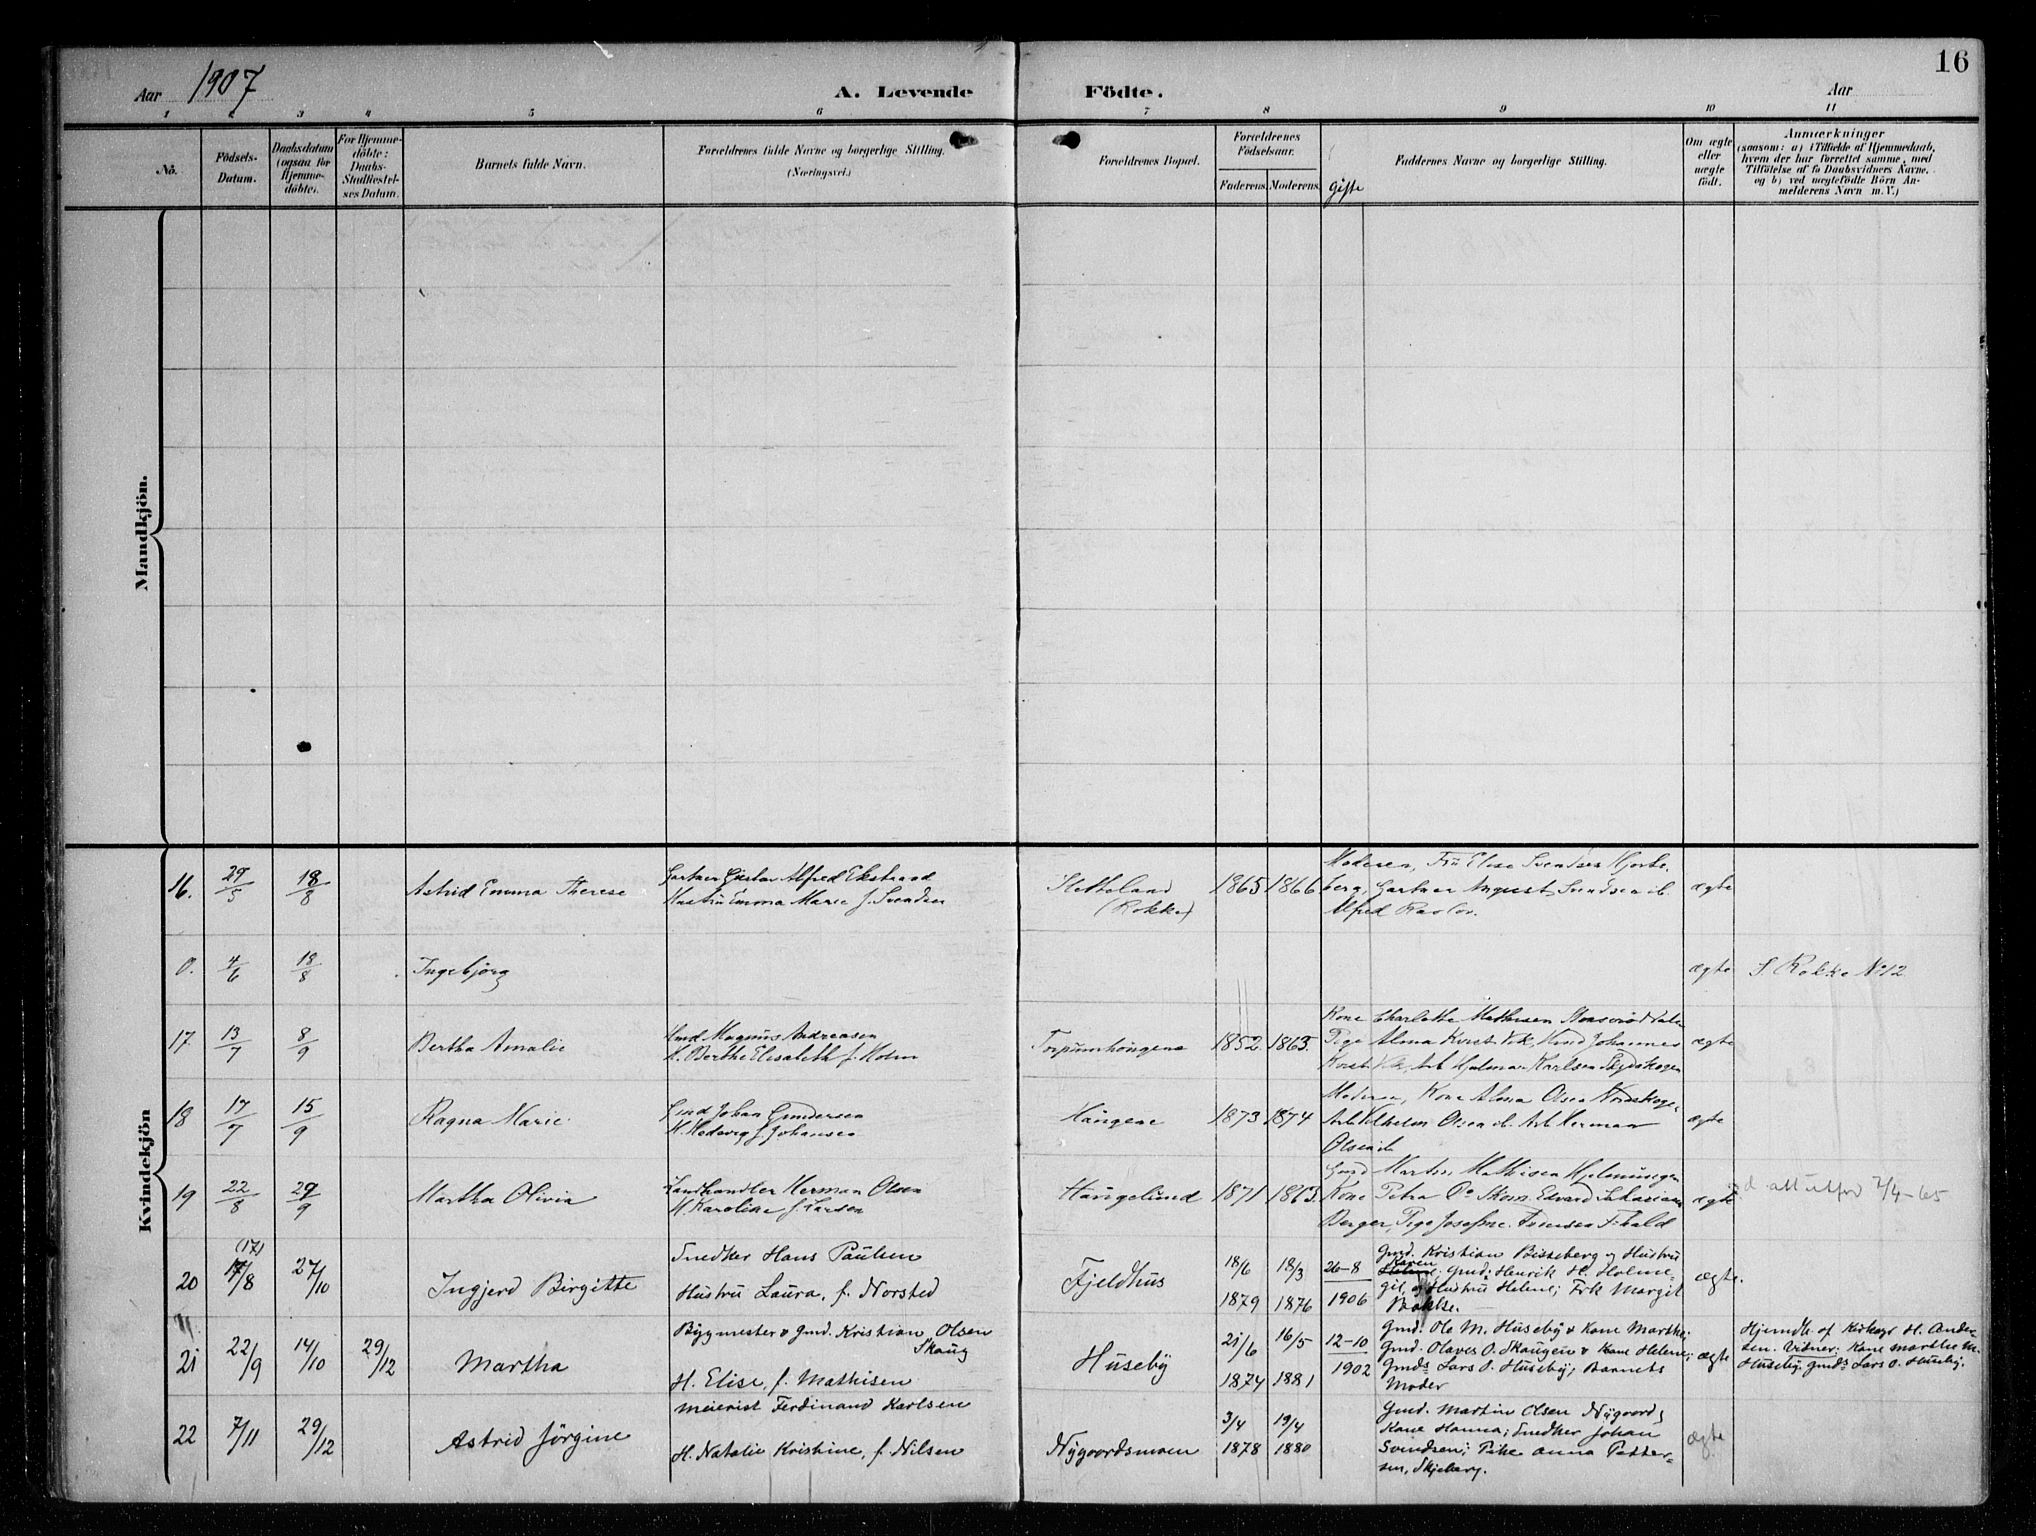 16
Aar 1907
A. Levende Födte.
Aar
1 2 3 4 5 6 7 8 9 10 11
No.
Födsels-
Datum.
Daabsdatum
(ogsaa for
Hjemme-
döbte).
For Hjemme-
döbte:
Daabs-
Stadfæstel-
ses Datum.
Barnets fulde Navn.
Forældrenes fulde Navne og borgerlige Stilling.
(Næringsvei.)
Forældrenes Bopæl.
Forældrenes
Födselsaar.
Faderens. Moderens.
Gifte
Faddernes Navne og borgerlige Stilling.
Om ægte
eller
uægte
født.
Anmærkninger
(saasom: a) i Tilfælde af Hjemmedaab,
hvem der har forrettet samme, med
Tilföielse af to Daabsvidners Navne,
og b) ved uægtefödte Börn An-
melderens Navn m. V.)
Mandkjön.
Kvindekjön
16. 29/5 18/8 Astrid Emma Therese
Gartner Gustav Alfred Ekstrand
Hustru Emma Marie f. Svendsen
Sletteland
(Rokke)
1865 1866
Moderen, Fru Elise Svendsen Hjorte-
berg, Gartner August Svendsen ib.
Alfred
ægte
0. 4/6 18/8 Ingebjørg
ægte S Rokke No 12
17 13/7 8/9 Bertha Amalie
Gmd Magnus Andreasen
H. Berthe Elisabeth f. Holm
Torpumhougene
1852. 1863.
Kone Charlotte Mathisen
Pige Alma Johannes
Arb Hjalmar Karlsen
ægte
18 17/7 15/9 Ragna Marie
Gmd Johan Gundersen
H. Hedevig f. Johansen
Haugene
1873 1874
Moderen, Kone Alma Olsen
Arb Vilhelm Olsen ib. Arb Herman
Olsen ib
ægte
19 22/8 29/9 Martha Olivia
Landhandler Herman Olsen
H. Karoline f. Larsen
Haugelund
1871 1863.
Gmd Martin Mathisen
Kone Petra Do Skom. Edvard
Berger, Pige Josefine
ægte
att utførd 7/4-65
20 (17) 17/8 27/10 Ingjerd Birgitte
Snedker Hans Paulsen
Hustru Laura, f. Norsted
Fjeldhus
18/6 1879 18/3 1876
26-8 1906
Gmd. Kristian Bisseberg og Hustru
Karen Gmd. Henrik H. Holme-
gil, og Hustru Helene; Frk Margit
Bakke.
ægte.
21 22/9 14/10 29/12 Martha
Bygmester & Gmd. Kristian Olsen
Skaug
H. Elise, f. Mathisen
Huseby
21/6 1874 16/5 1881
12-10 1902
Gmd. Ole M. Huseby & Kone Marthe;
Gmd. Olaves O. Skaugen & Kone Helene;
Gmds. Lars O. Huseby; Barnets
Moder
ægte
Hjemdb. af Kirkesgr H. Ander-
sen. Vidner: Kone Marthe M.
Huseby, gmds Lars O. Huseby.
22 7/11 29/12 Astrid Jörgine
Meierist Ferdinand Karlsen
H. Natalie Kristine, f. Nilsen
Nygaardsmoen
3/4 1878 19/4 1880
Gmd. Martin Olsen Nygaard;
Kone Hanna; Snedker Johan
Svendsen; Pike Anna Petter-
sen, Skjeberg.
ægte